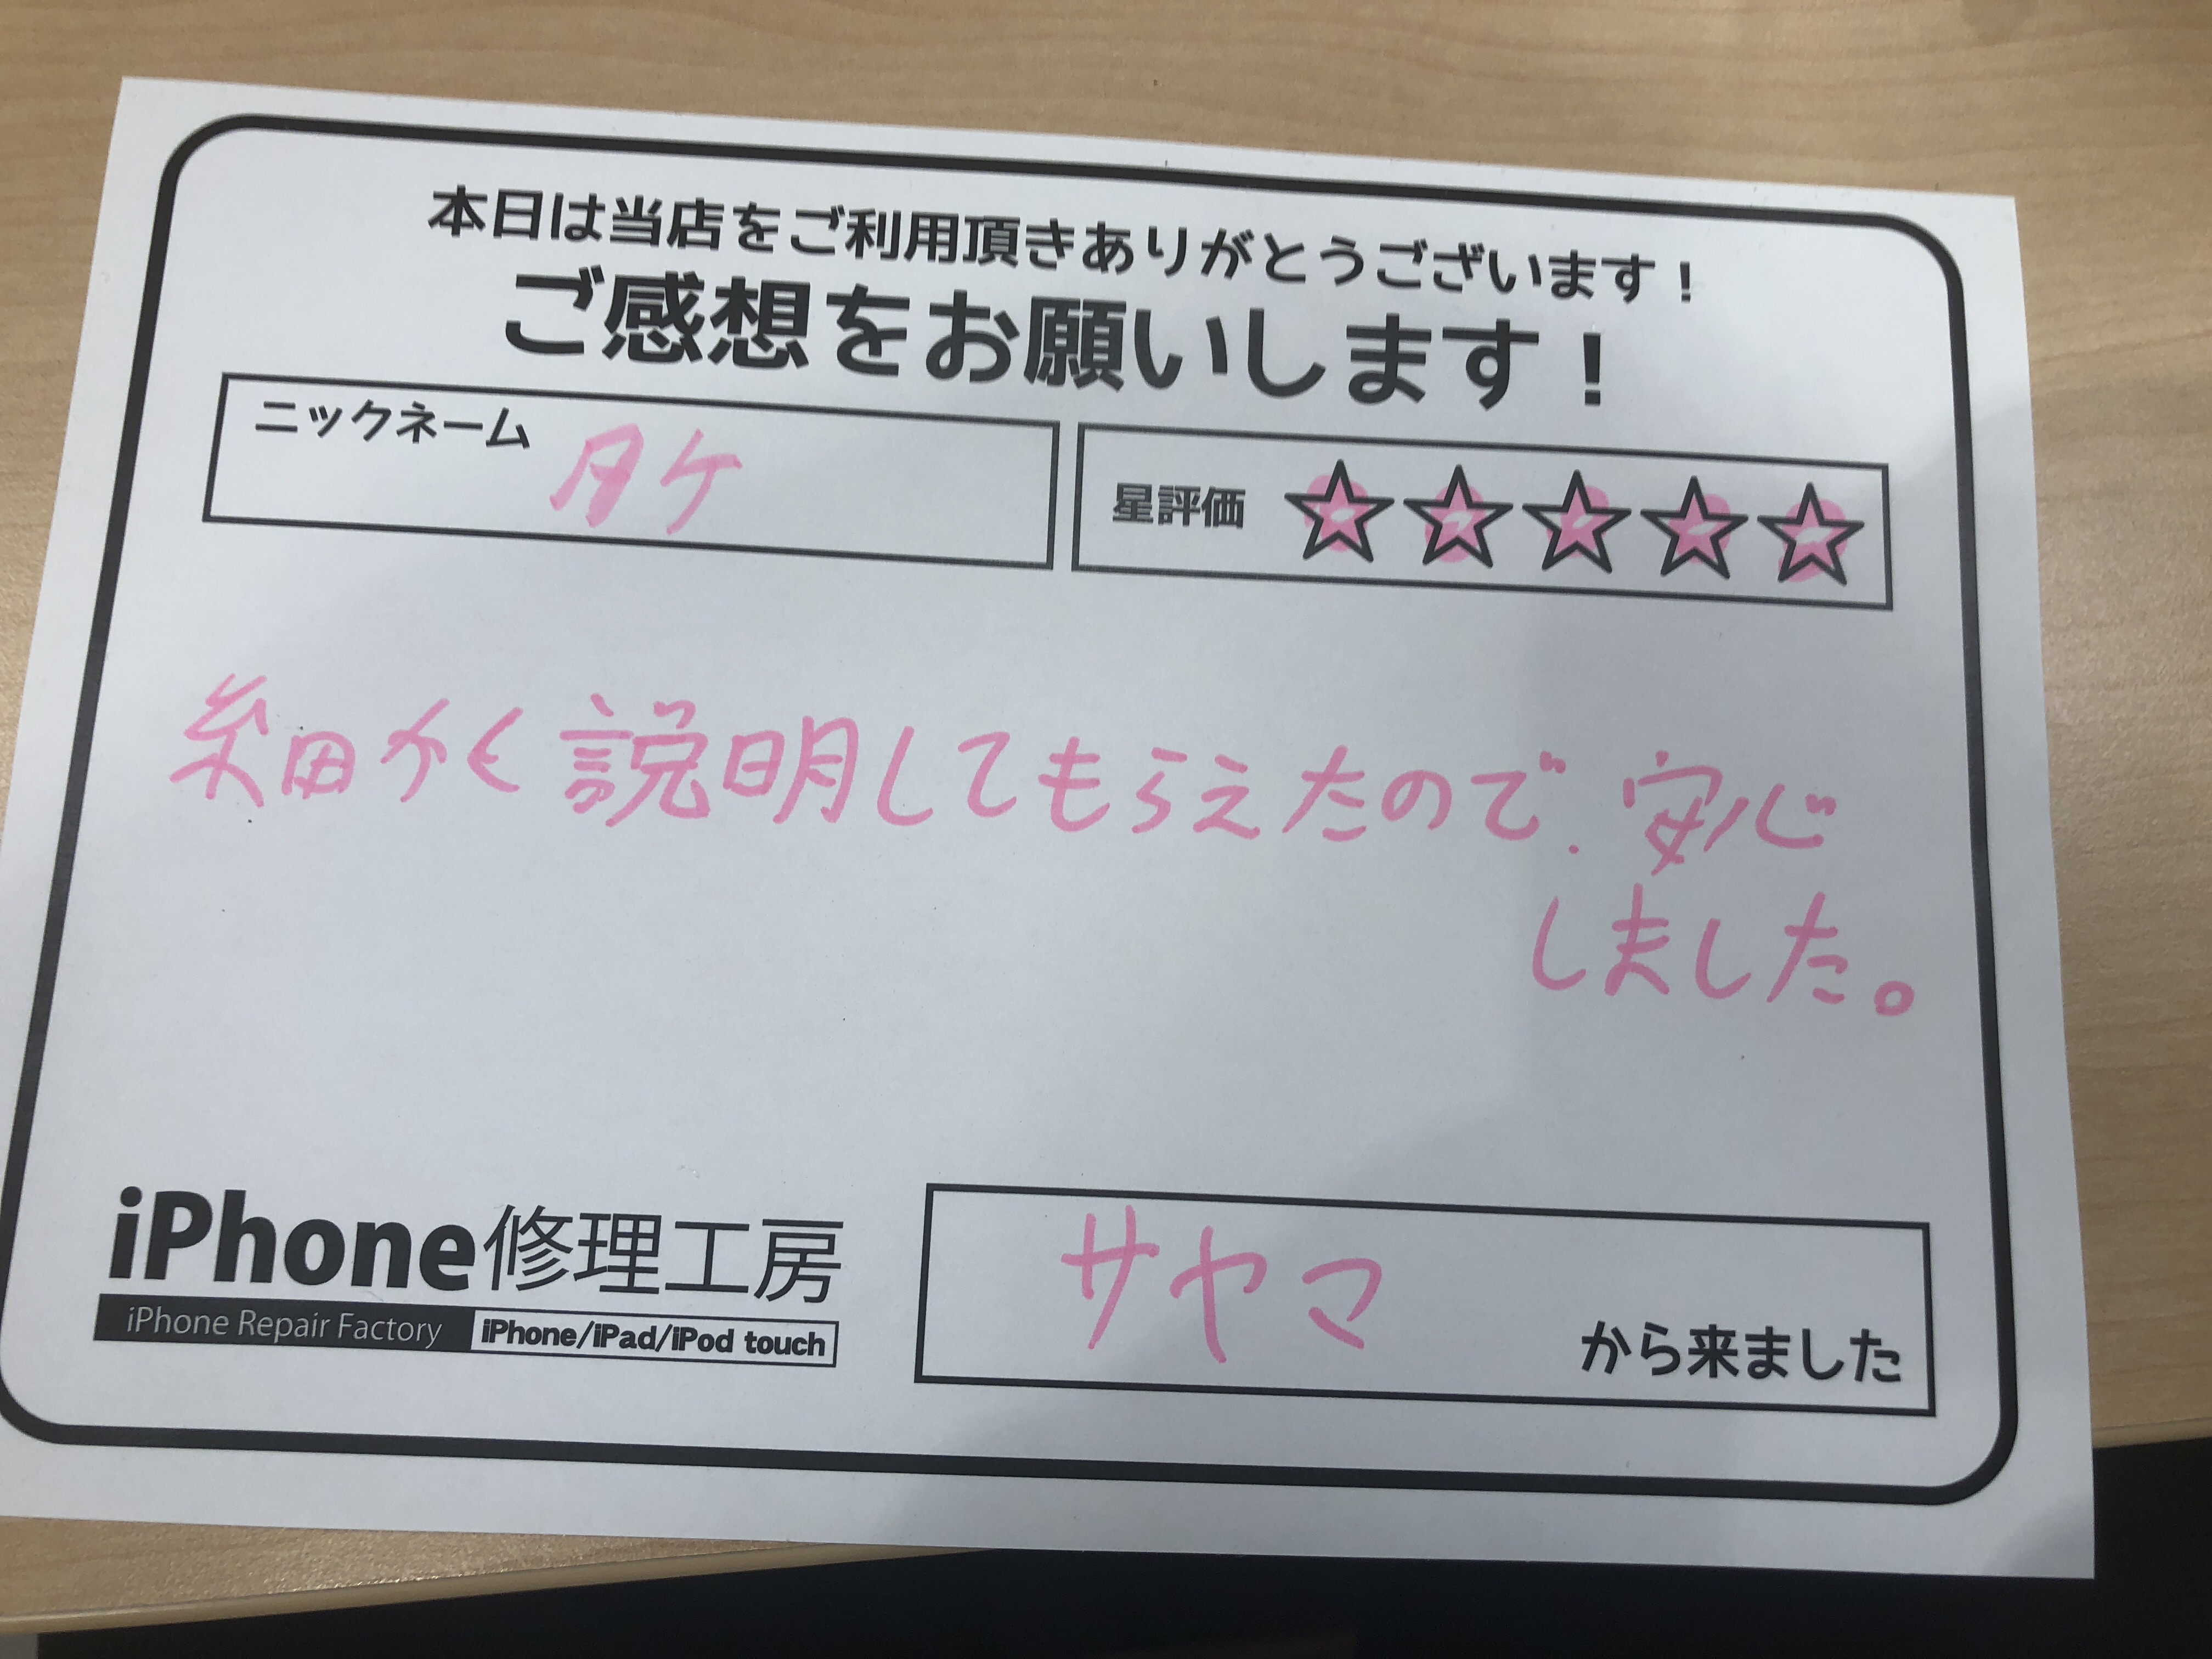 本日は当店をご利用頂きありがとうございます！
ご感想をお願いします！
ニックネーム タケ
星評価 ☆☆☆☆☆
細かく説明してもらえたので、安心
しました。
iPhone修理工房
iPhone Repair Factory iPhone/iPad/iPod touch
サヤマ から来ました